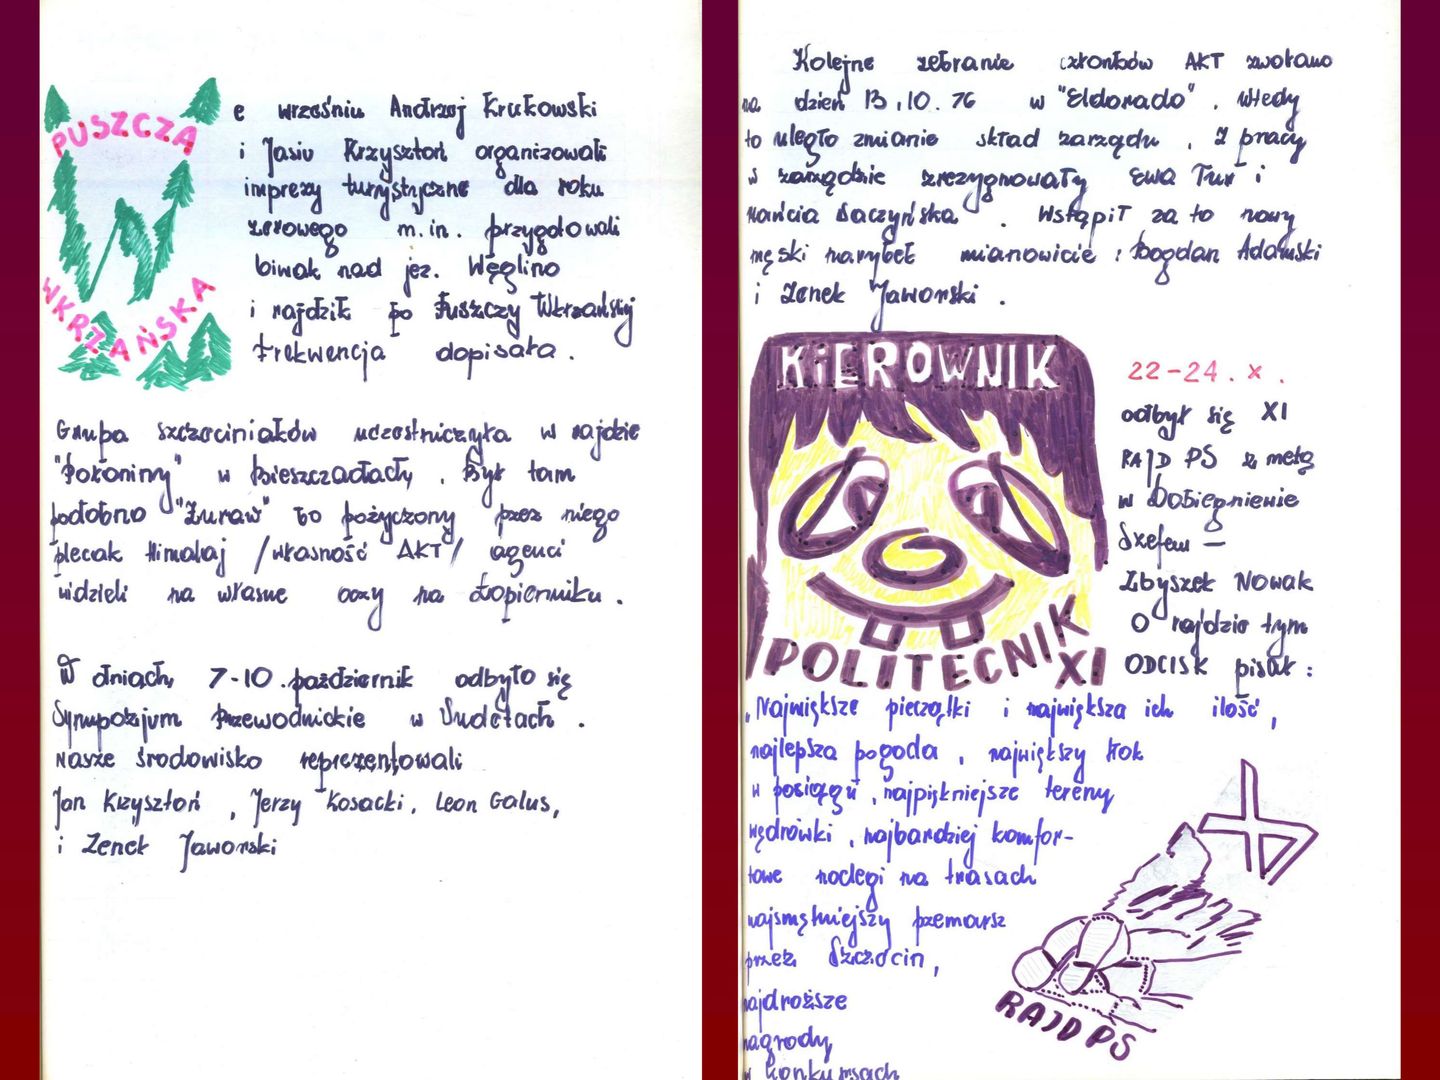 PUSZCZA
WKRZAŃSKA
e wrześniu Andrzej Krukowski
i Jasiu Krzysztoń organizowali
imprezy turystyczne dla roku
zerowego m.in. przygotowali
biwak nad jez. Węglino
i rajdzik po Puszczy Wkrzańskiej
Frekwencja dopisała.
Grupa szczeciniaków uczestniczyła w rajdzie
"Połoniny" w Bieszczadach. Był tam
podobno "Żuraw" bo pożyczony przez niego
plecak Himalaj /własność AKT/ agenci
widzieli na własne oczy na Łopienniku.
W dniach 7-10.październik odbyło się
Sympozjum Przewodnickie w Sudetach.
Nasze środowisko reprezentowali
Jan Krzysztoń, Jerzy Kosacki, Leon Galus,
i Zenek Jaworski
Kolejne zebranie członków AKT zwołano
na dzień 13.10.76 w "Eldorado". Wtedy
to uległo zmianie skład zarządu. Z pracy
w zarządzie zrezygnowały Ewa Tur i
Mańcia Daczyńska. Wstąpił za to nowy
męski narybek mianowicie: Bogdan Adamski
i Zenek Jaworski.
KIEROWNIK
POLITECNIK
XI
22-24.X.
odbył się XI
RAJD PS z metą
w Dobiegniewie
Szefem –
Zbyszek Nowak
O rajdzie tym
ODCISK pisał:
"Największe pieczątki i największa ich ilość,
najlepsza pogoda, największy tłok
w pociągu, najpiękniejsze tereny
wędrówki, najbardziej komfor-
towe noclegi na trasach
najsmętniejszy przemarsz
przez Szczecin,
najdroższe
nagrody
w konkursach
RAJD PS